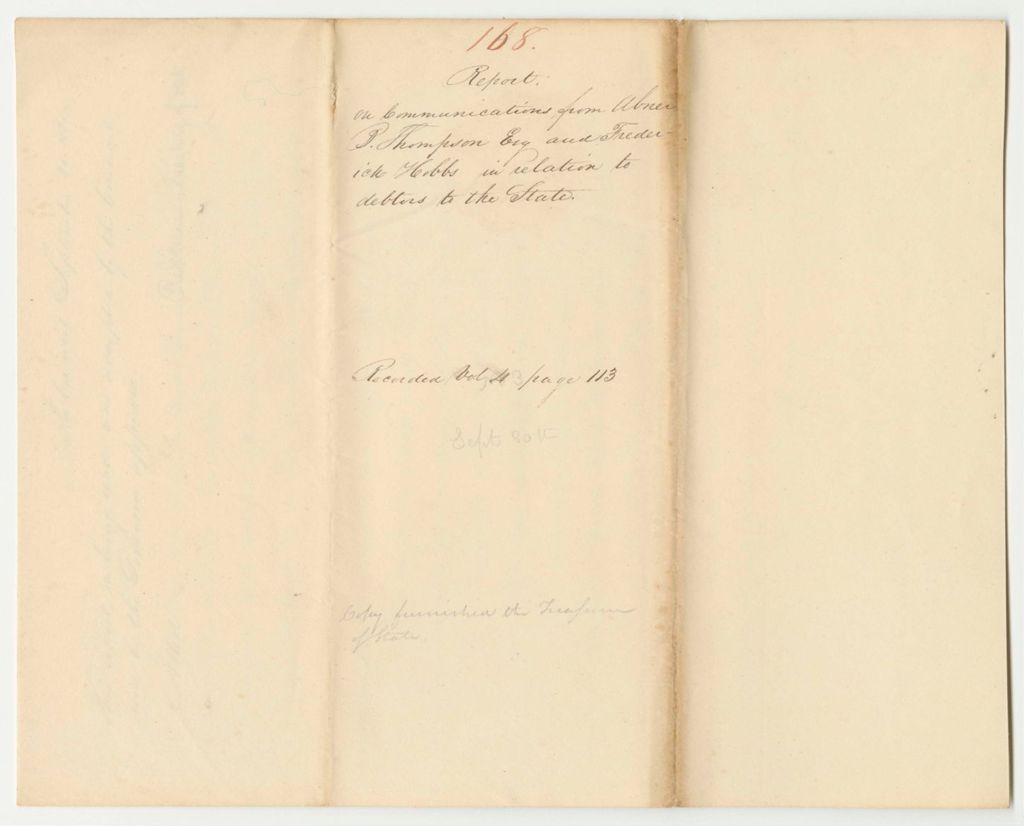 168.
Report.
on Communications from Abner
P. Thompson Esq and Freder-
ick Hobbs in relation to
debtors to the State.
Recorded Vol. 4 page 113
Sept 30th
Copy furnished the Treasurer
of State.